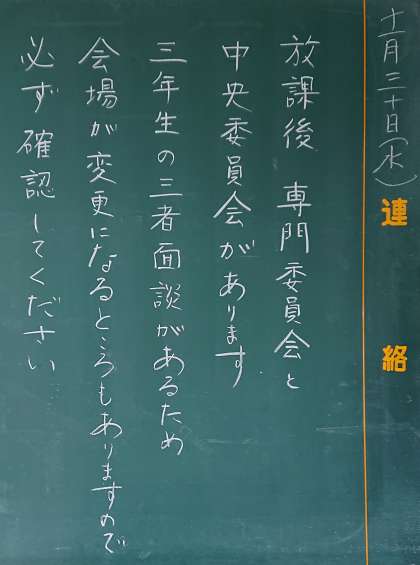 十一月三十日(水)
連絡
放課後 専門委員会と
中央委員会があります
三年生の三者面談があるため
会場が変更になるところもありますので
必ず確認してください